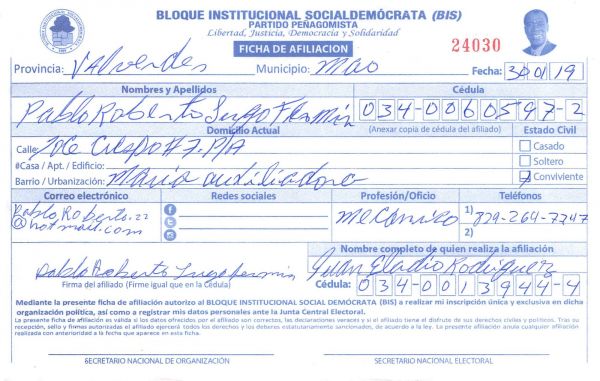 BLOQUE INSTITUCIONAL SOCIALDEMÓCRATA (BIS)
PARTIDO PEÑAGOMISTA
Libertad, Justicia, Democracia y Solidaridad
FICHA DE AFILIACION
24030
Provincia: Valverdes Municipio: Mao Fecha: 30/01/19
Nombres y Apellidos Cédula
Pablo Roberto Lugo Fermin 034-0060597-2
Domicilio Actual (Anexar copia de cédula del afiliado) Estado Civil
Calle: Jose Crespo # 7. P/A Casado
#Casa / Apt. / Edificio: Soltero
Barrio / Urbanización: Maria auxiliadora Conviviente
Correo electrónico Redes sociales Profesión/Oficio Teléfonos
Pablo_Roberto.22 @hotmail.com Mecanico 1) 829-264-7747
2)
Nombre completo de quien realiza la afiliación
Pablo Roberto Lugo fermin Juan Eladio Rodriguez
Firma del afiliado (Firme igual que en la Cédula) Cédula: 034-0013944-4
Mediante la presente ficha de afiliación autorizo al BLOQUE INSTITUCIONAL SOCIAL DEMÓCRATA (BIS) a realizar mi inscripción única y exclusiva en dicha
organización política, así como a registrar mis datos personales ante la Junta Central Electoral.
La presente ficha de afiliación es válida si los datos ofrecidos por el afiliado son correctos, las declaraciones veraces y si el afiliado tiene el disfrute de sus derechos civiles y políticos. Tras su
recepción, sello y firmas autorizadas el afiliado ejercerá todos los derechos y los deberes estatutariamente sancionados, de acuerdo a la ley. La presente afiliación anula cualquier afiliación
realizada con anterioridad a la fecha que aparece en esta ficha.
SECRETARIO NACIONAL DE ORGANIZACIÓN SECRETARIO NACIONAL ELECTORAL